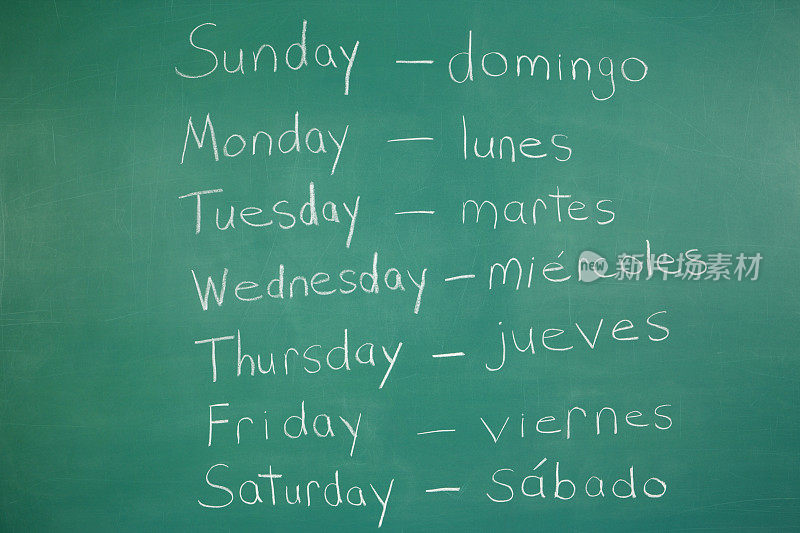 Sunday – domingo
Monday – lunes
Tuesday – martes
Wednesday – miércoles
new 新片场素材
Thursday – jueves
Friday – viernes
Saturday – sábado